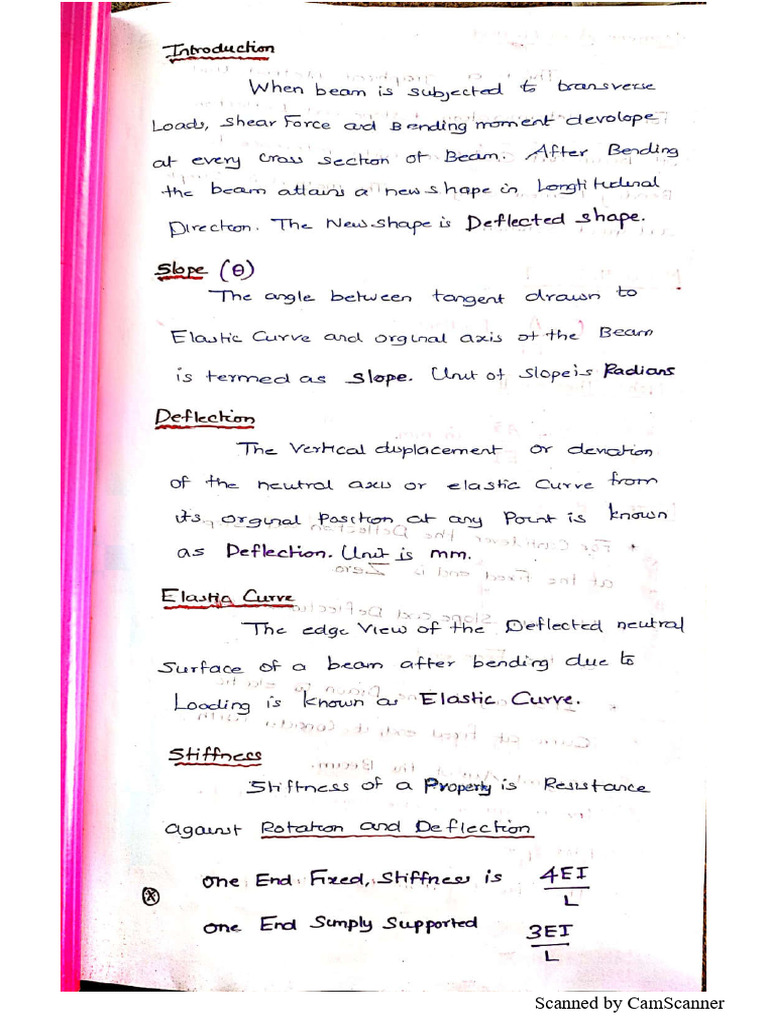 Introduction
When beam is subjected to transverse
Loads, Shear Force and Bending moment devolope
at every cross section of Beam. After Bending
the beam attains a new shape in Longtitudenal
Direction. The New shape is Deflected shape.
Slope (θ)
The angle between tangent drawn to
Elastic Curve and orginal axis of the Beam
is termed as slope. Unit of slope is Radians
Deflection
The Vertical displacement or deviation
of the neutral axis or elastic Curve from
its orginal Position at any Point is known
as Deflection. Unit is mm.
Elastic Curve
The edge View of the Deflected neutral
Surface of a beam after bending due to
Loading is known as Elastic Curve.
Stiffness
Stiffness of a Property is Resistance
against Rotation and Deflection
one End Fixed, Stiffness is 4EI/L
one End Simply Supported 3EI/L
Scanned by CamScanner